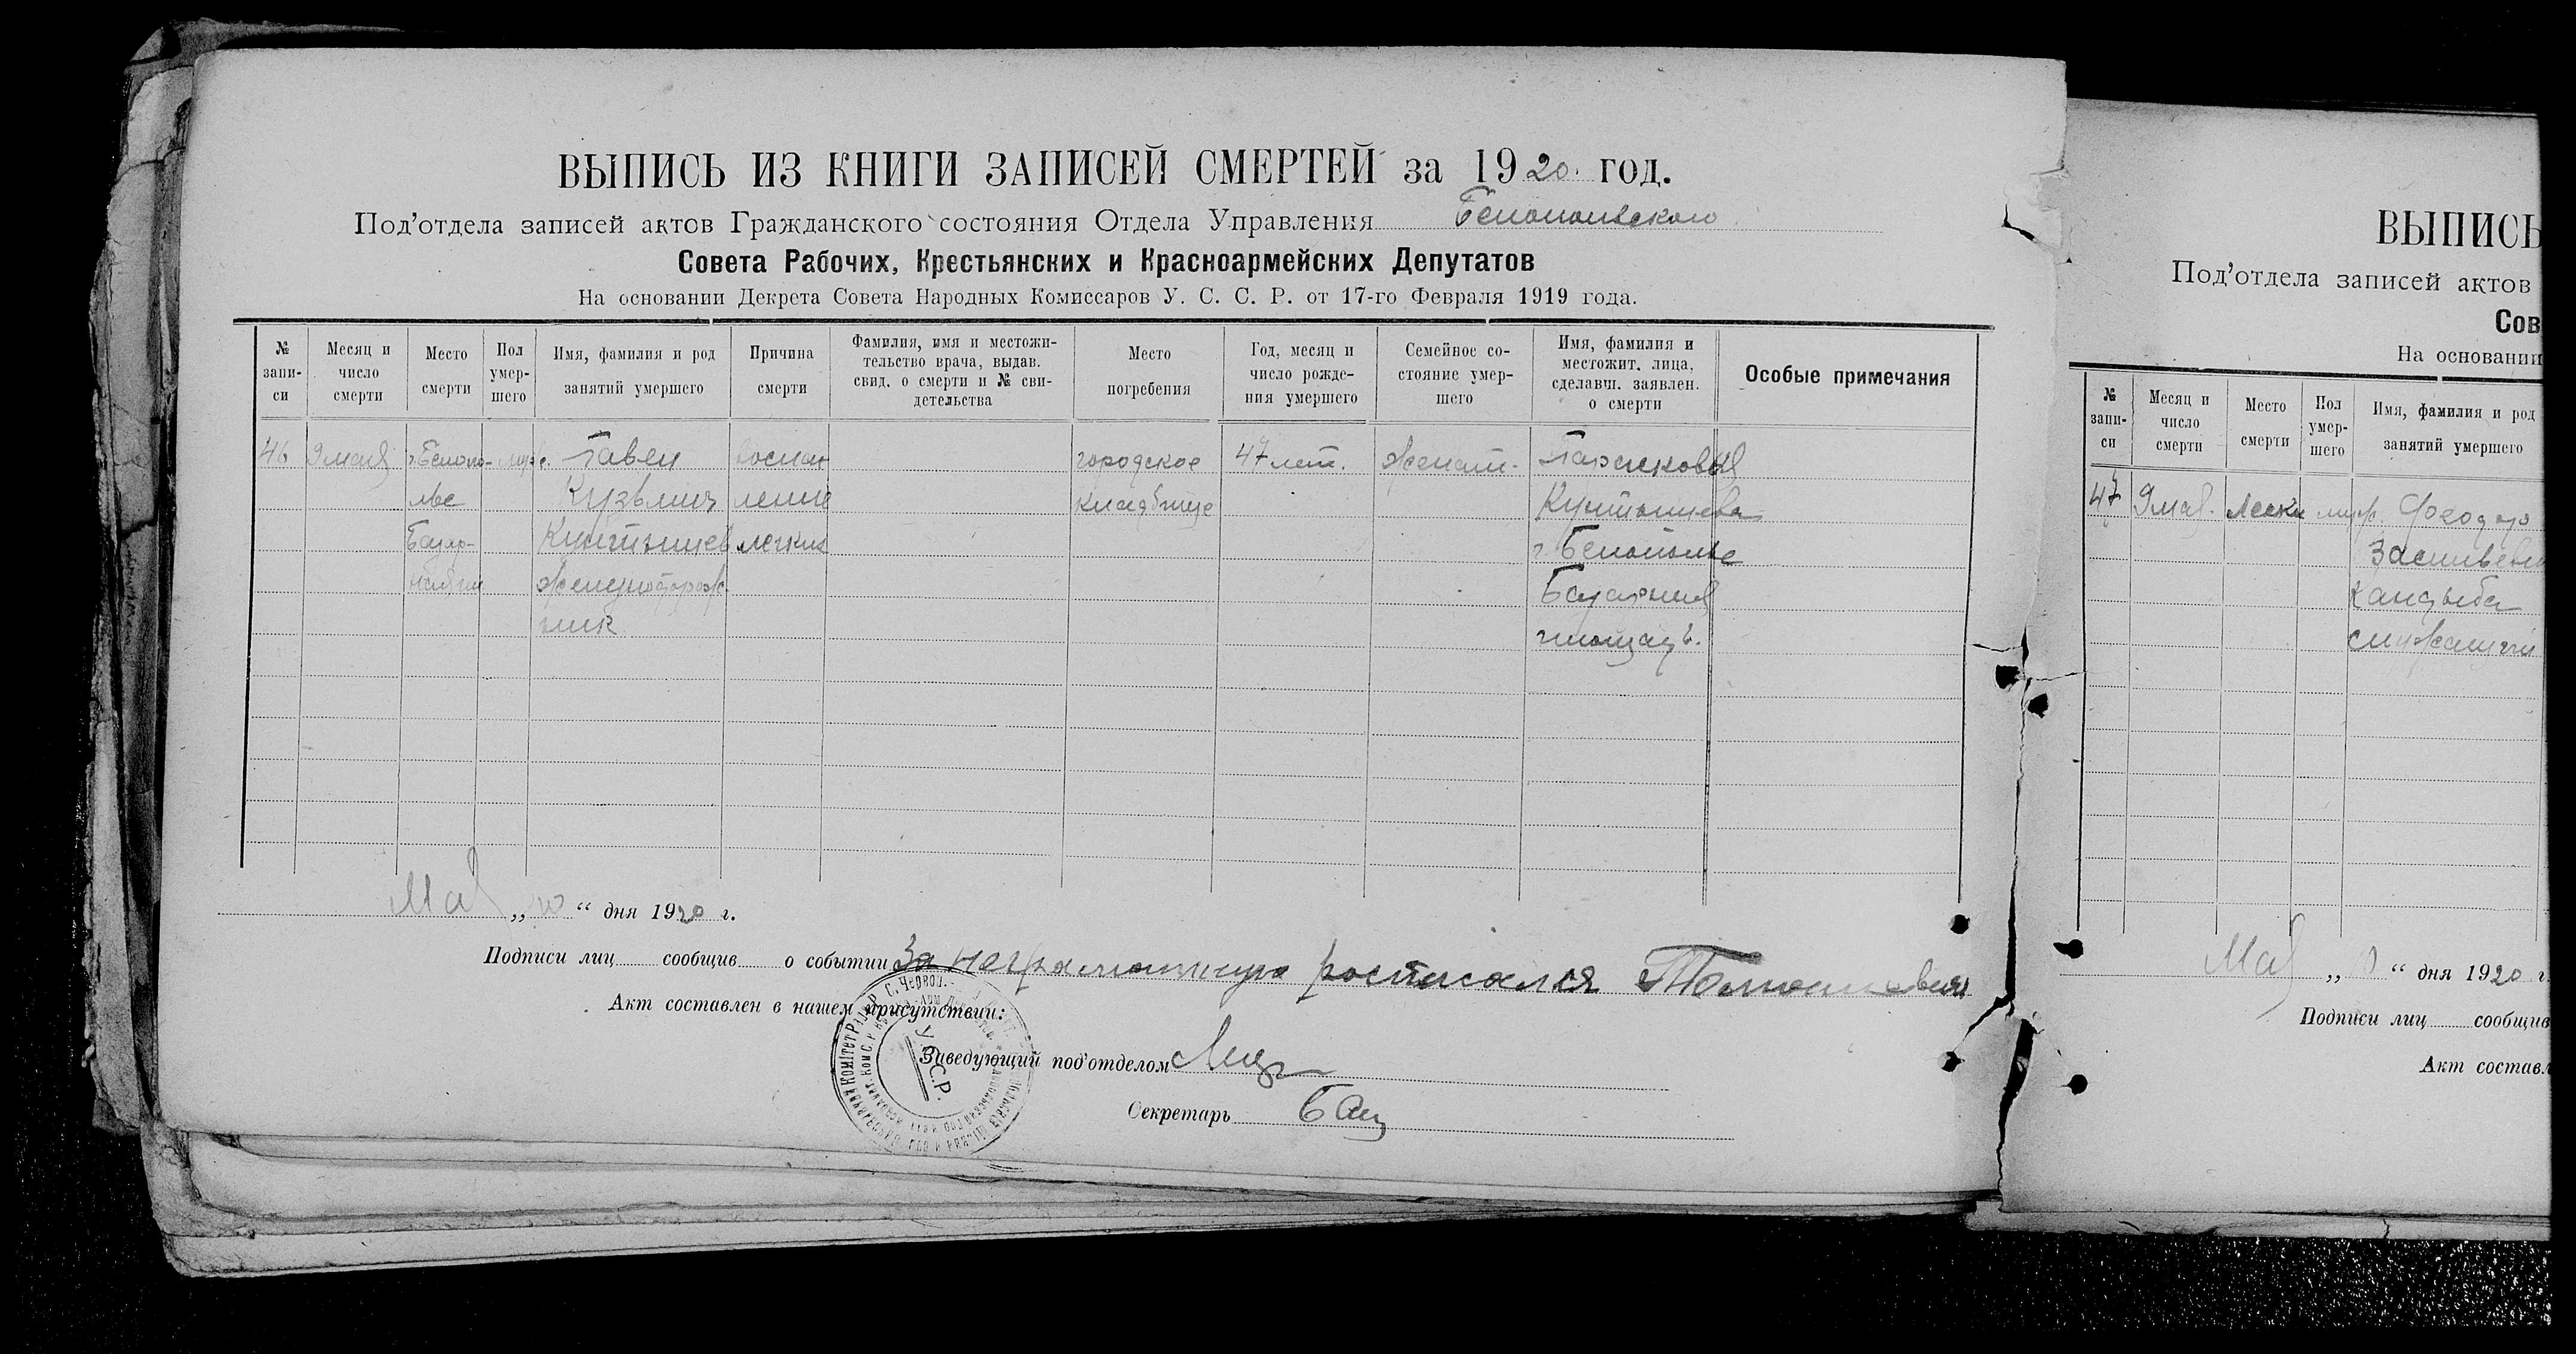 ВЫПИСЬ ИЗ КНИГИ ЗАПИСЕЙ СМЕРТЕЙ за 1920. год.
Под’отдела записей актов Гражданского состояния Отдела Управления Белопольского
Совета Рабочих, Крестьянских и Красноармейских Депутатов
На основании Декрета Совета Народных Комиссаров У. С. С. Р. от 17-го Февраля 1919 года.
№ запи-си
Месяц и число смерти
Место смерти
Пол умер-шего
Имя, фамилия и род занятий умершего
Причина смерти
Фамилия, имя и местожи-тельство врача, выдав. свид. о смерти и № сви-детельства
Место погребения
Год, месяц и число рожде-ния умершего
Семейное со-стояние умер-шего
Имя, фамилия и местожит. лица, сделавш. заявлен. о смерти
Особые примечания
46 9 мая г. Белопо- муж. Павел воспал городское 47 лет. женат.
лье Кузьмич ление кладбище
легких г. Белополье
железнодорож Базарная
ник площадь.
Мая „ 10 “ дня 1920 г.
Подписи лиц сообщив о событии За неграмотную росписался
Акт составлен в нашем присутствии:
Заведующий под’отделом
Секретарь
У.С.С.Р.
ВЫПИСЬ
Под’отдела записей актов
Сов
На основании
№ запи-си
Месяц и число смерти
Место смерти
Пол умер-шего
Имя, фамилия и род занятий умершего
47 9 мая. муж. Феодор
Кандыба
служащий
Мая „ “ дня 1920 г.
Подписи лиц сообщив
Акт составл